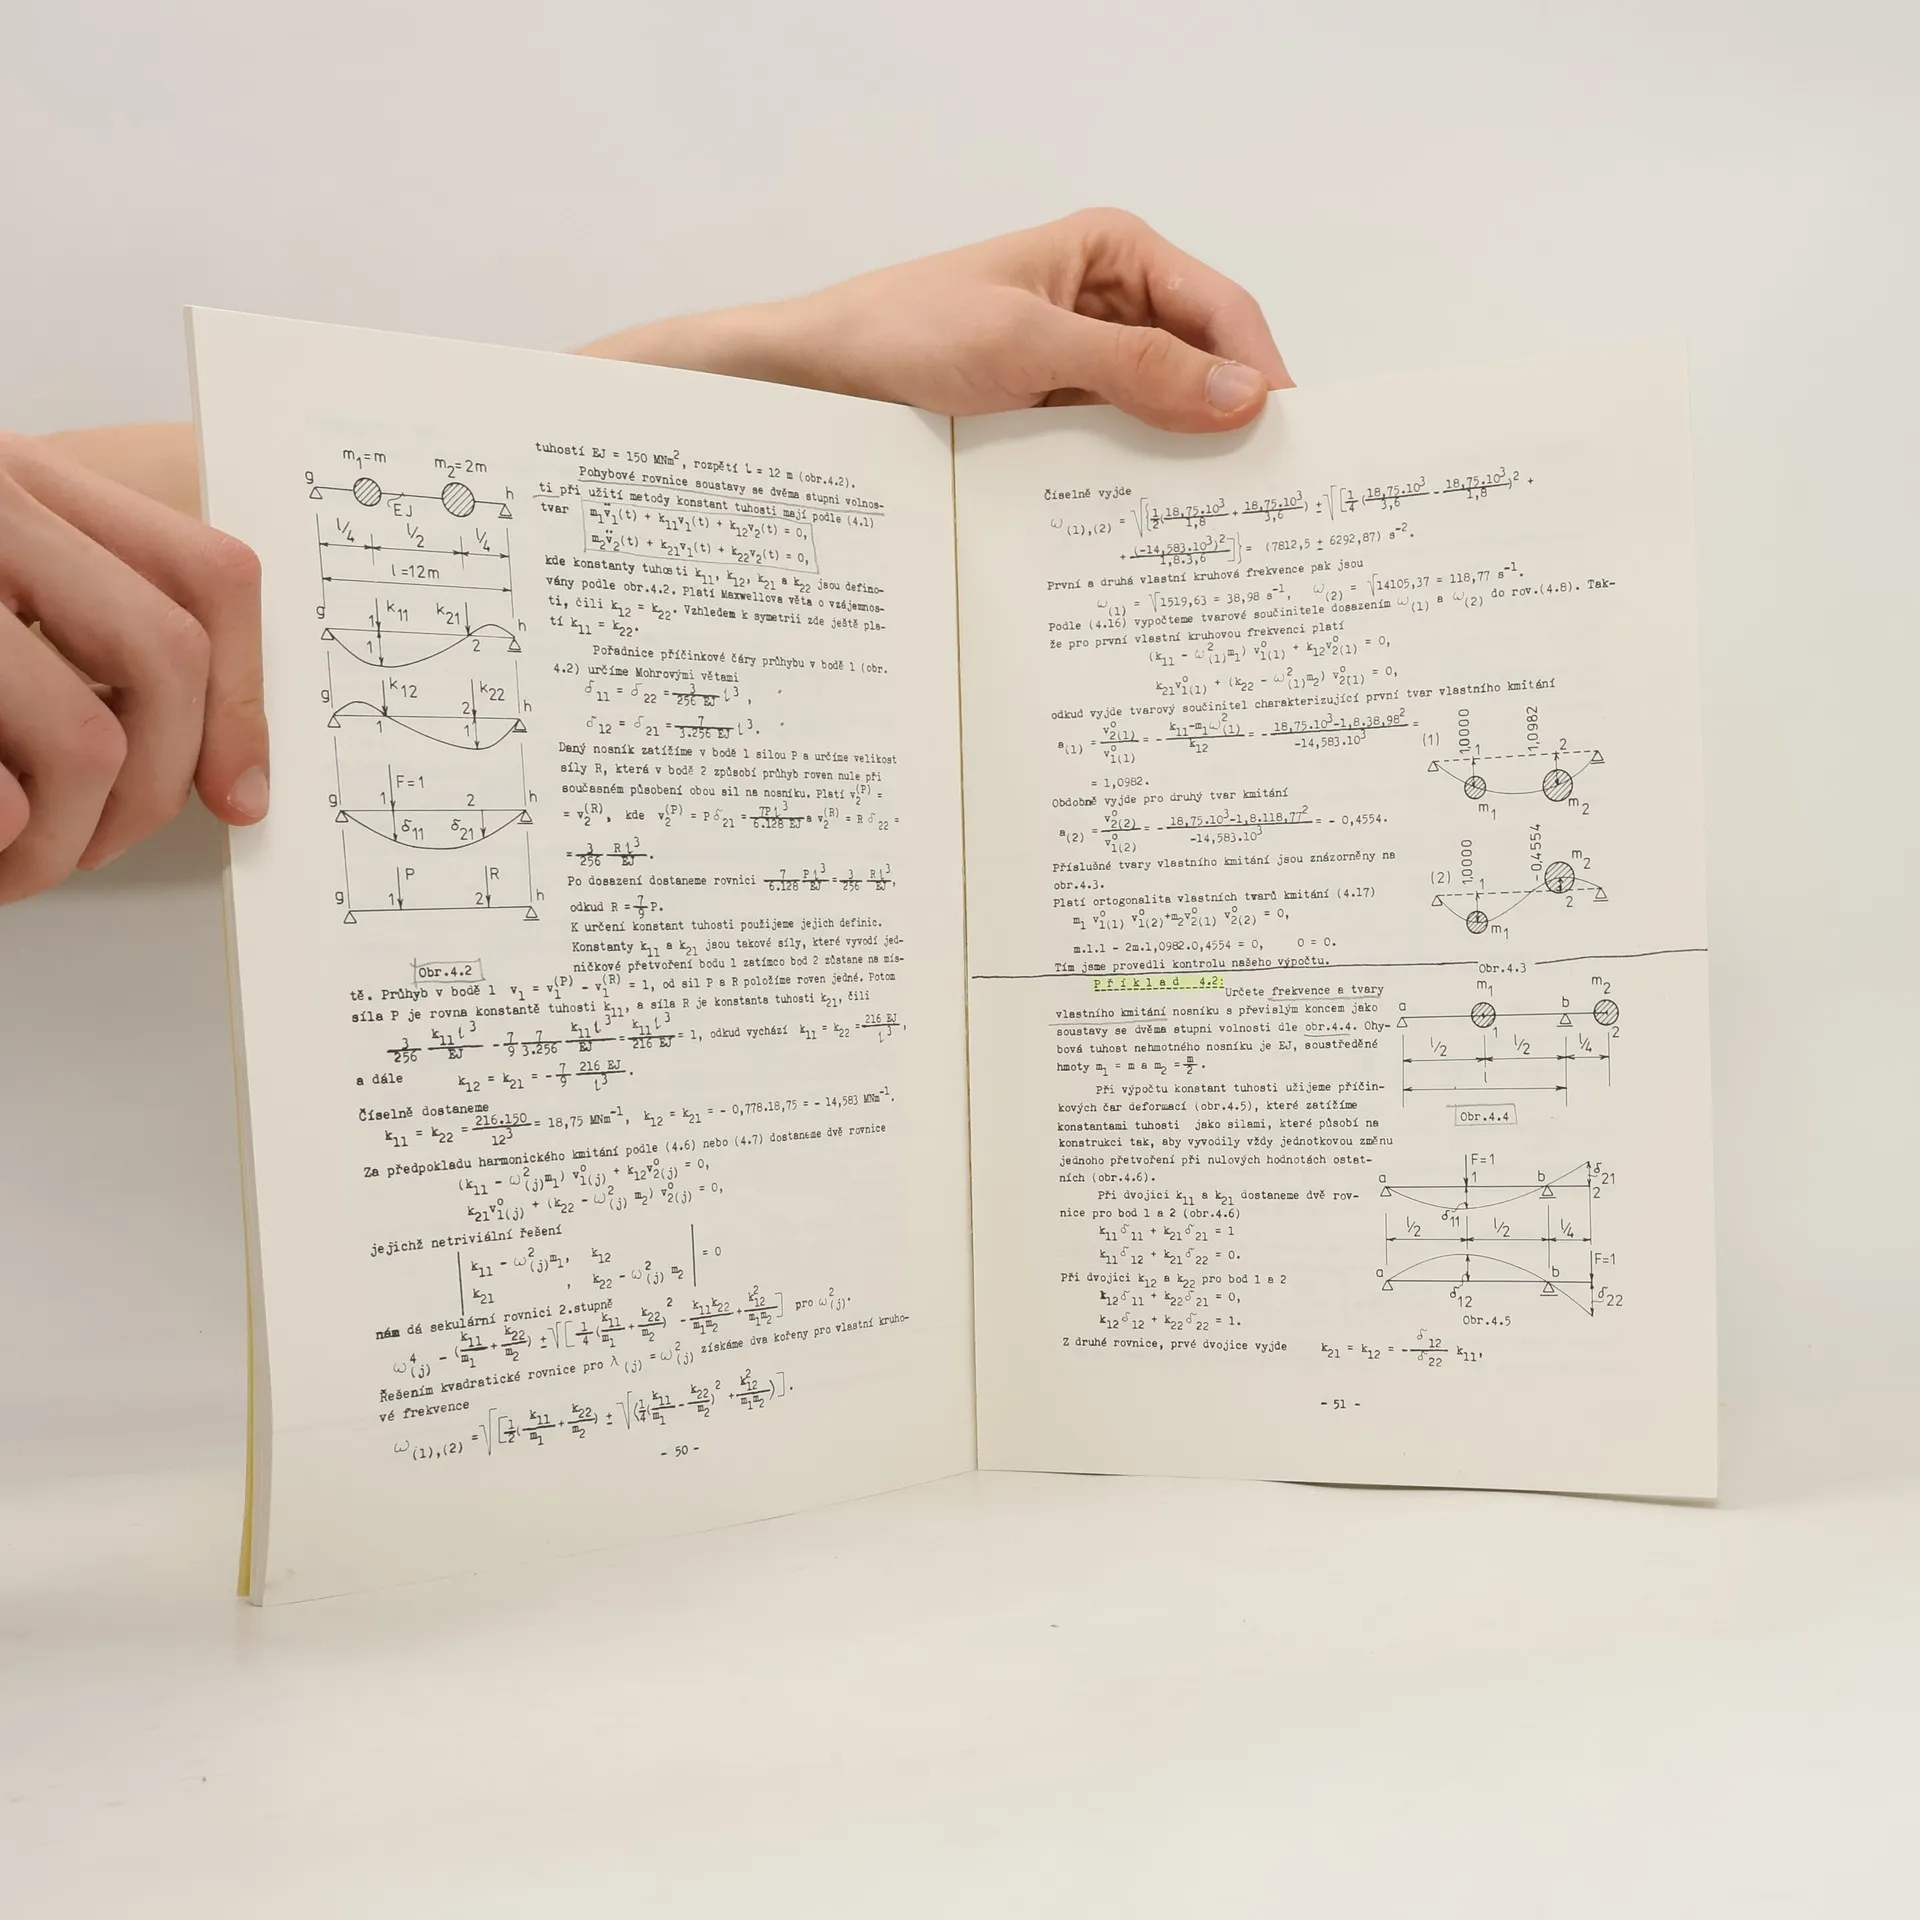 m1=m
m2=2m
g
h
EJ
l/4
l/2
l/4
l=12m
g
k11
k21
h
1
1
2
g
k12
k22
h
1
2
1
g
F=1
1
2
h
δ11
δ21
g
P
R
h
1
2
Obr.4.2
tuhostí EJ = 150 MNm², rozpětí l = 12 m (obr.4.2).
Pohybové rovnice soustavy se dvěma stupni volnos-
ti při užití metody konstant tuhosti mají podle (4.1)
tvar
m1v̈1(t) + k11v1(t) + k12v2(t) = 0,
m2v̈2(t) + k21v1(t) + k22v2(t) = 0,
kde konstanty tuhosti k11, k12, k21 a k22 jsou defino-
vány podle obr.4.2. Platí Maxwellova věta o vzájemnos-
ti, čili k12 = k22. Vzhledem k symetrii zde ještě pla-
tí k11 = k22.
Pořadnice příčinkové čáry průhybu v bodě 1 (obr.
4.2) určíme Mohrovými větami
δ11 = δ22 = 3/(256 EJ) l³,
δ12 = δ21 = 7/(3.256 EJ) l³.
Daný nosník zatížíme v bodě 1 silou P a určíme velikost
síly R, která v bodě 2 způsobí průhyb roven nule při
současném působení obou sil na nosníku. Platí v2(P) =
= v2(R), kde v2(P) = Pδ21 = 7Pl³/(6.128 EJ) a v2(R) = Rδ22 =
= 3/256 Rl³/EJ.
Po dosazení dostaneme rovnici 7/6.128 Pl³/EJ = 3/256 Rl³/EJ,
odkud R = 7/9 P.
K určení konstant tuhosti použijeme jejich definic.
Konstanty k11 a k21 jsou takové síly, které vyvodí jed-
ničkové přetvoření bodu 1 zatímco bod 2 zůstane na mís-
tě. Průhyb v bodě 1 v1 = v1(P) - v1(R) = 1, od sil P a R položíme roven jedné. Potom
síla P je rovna konstantě tuhosti k11, a síla R je konstanta tuhosti k21, čili
3/256 k11l³/EJ - 7/9 7/3.256 k11l³/EJ = k11l³/216 EJ = 1, odkud vychází k11 = k22 = 216 EJ/l³,
a dále k12 = k21 = - 7/9 216 EJ/l³.
Číselně dostaneme
k11 = k22 = 216.150/12³ = 18,75 MNm⁻¹, k12 = k21 = - 0,778.18,75 = - 14,583 MNm⁻¹.
Za předpokladu harmonického kmitání podle (4.6) nebo (4.7) dostaneme dvě rovnice
(k11 - ω²(j)m1) v°1(j) + k12v°2(j) = 0,
k21v°1(j) + (k22 - ω²(j) m2) v°2(j) = 0,
jejichž netriviální řešení
k11 - ω²(j)m1, k12
= 0
k21 , k22 - ω²(j) m2
nám dá sekulární rovnici 2.stupně
ω⁴(j) - (k11/m1 + k22/m2) ± √[1/4(k11/m1 + k22/m2)² - k11k22/m1m2 + k²12/m1m2] pro ω²(j).
Řešením kvadratické rovnice pro λ(j) = ω²(j) získáme dva kořeny pro vlastní kruho-
vé frekvence
ω(1),(2) = √[1/2(k11/m1 + k22/m2) ± √(1/4(k11/m1 - k22/m2)² + k²12/m1m2)].
- 50 -
Číselně vyjde
ω(1),(2) = √{1/2(18,75.10³/1,8 + 18,75.10³/3,6) ± √[1/4 (18,75.10³/3,6 - 18,75.10³/1,8)² +
+ (-14,583.10³)²/1,8.3,6]} = (7812,5 ± 6292,87) s⁻².
První a druhá vlastní kruhová frekvence pak jsou
ω(1) = √1519,63 = 38,98 s⁻¹, ω(2) = √14105,37 = 118,77 s⁻¹.
Podle (4.16) vypočteme tvarové součinitele dosazením ω(1) a ω(2) do rov.(4.8). Tak-
že pro první vlastní kruhovou frekvenci platí
(k11 - ω²(1)m1) v°1(1) + k12v°2(1) = 0,
k21v°1(1) + (k22 - ω²(1)m2) v°2(1) = 0,
odkud vyjde tvarový součinitel charakterizující první tvar vlastního kmitání
a(1) = v°2(1)/v°1(1) = - k11-m1ω²(1)/k12 = - 18,75.10³-1,8.38,98²/-14,583.10³ =
= 1,0982.
Obdobně vyjde pro druhý tvar kmitání
a(2) = v°2(2)/v°1(2) = - 18,75.10³-1,8.118,77²/-14,583.10³ = - 0,4554.
Příslušné tvary vlastního kmitání jsou znázorněny na
obr.4.3.
Platí ortogonalita vlastních tvarů kmitání (4.17)
m1 v°1(1) v°1(2)+m2v°2(1) v°2(2) = 0,
m.1.1 - 2m.1,0982.0,4554 = 0, 0 = 0.
Tím jsme provedli kontrolu našeho výpočtu.
(1)
1,0000
1,0982
1
2
m1
m2
(2)
1,0000
-0,4554
1
m2
2
m1
Obr.4.3
Příklad 4.2:
Určete frekvence a tvary
vlastního kmitání nosníku s převislým koncem jako
soustavy se dvěma stupni volnosti dle obr.4.4. Ohy-
bová tuhost nehmotného nosníku je EJ, soustředěné
hmoty m1 = m a m2 = m/2.
Při výpočtu konstant tuhosti užijeme příčin-
kových čar deformací (obr.4.5), které zatížíme
konstantami tuhosti jako silami, které působí na
konstrukci tak, aby vyvodily vždy jednotkovou změnu
jednoho přetvoření při nulových hodnotách ostat-
ních (obr.4.6).
Při dvojici k11 a k21 dostaneme dvě rov-
nice pro bod 1 a 2 (obr.4.6)
k11δ11 + k21δ21 = 1
k11δ12 + k21δ22 = 0.
Při dvojici k12 a k22 pro bod 1 a 2
k12δ11 + k22δ21 = 0,
k12δ12 + k22δ22 = 1.
Z druhé rovnice, prvé dvojice vyjde k21 = k12 = - δ12/δ22 k11,
m1
m2
a
b
1
2
l/2
l/2
l/4
l
Obr.4.4
F=1
a
1
b
δ21
2
δ11
l/2
l/2
l/4
F=1
a
b
δ12
δ22
Obr.4.5
- 51 -